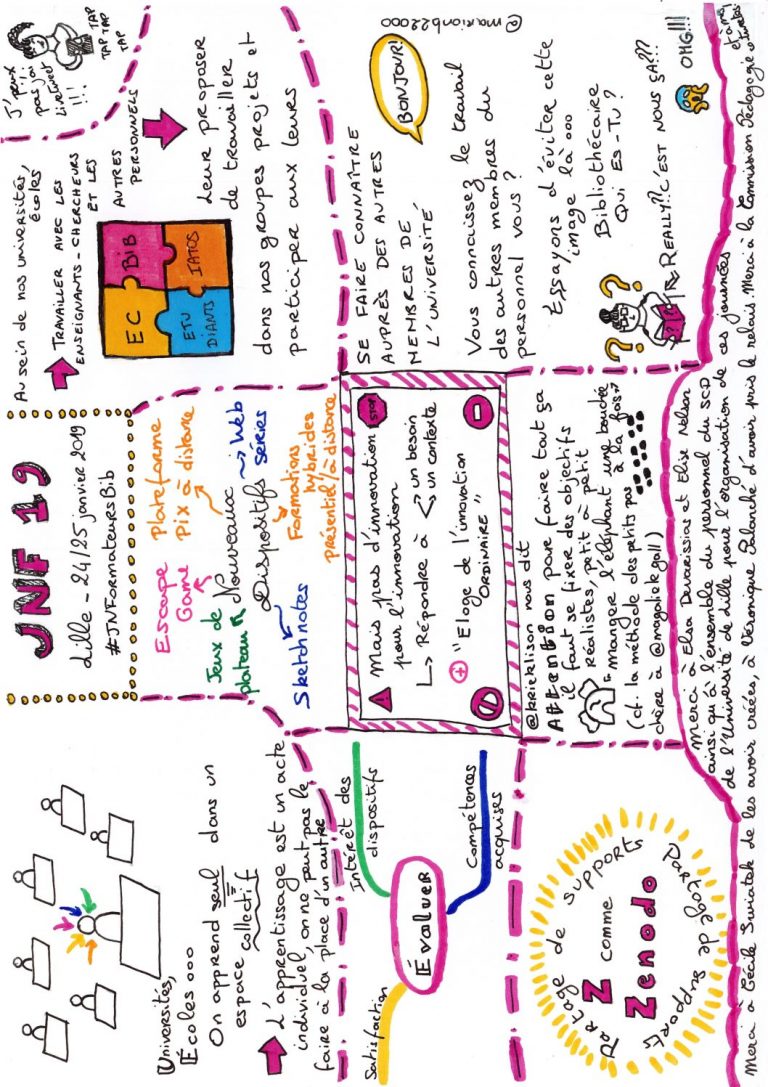 JNF 19
Lille - 24/25 janvier 2019
#JNFormateursBib
Universités,
Écoles...
On apprend seul dans un
espace collectif
L'apprentissage est un acte
individuel, on ne peut pas le
faire à la place d'un autre
Escape
Game
Plateforme
Pix à distance
Jeux de
plateau
Nouveaux
Dispositifs
Web
séries
Sketchnotes
Formations
hybrides
présentiel/à distance
Au sein de nos universités,
écoles,
Travailler avec les
enseignants-chercheurs
et les
autres
personnels
EC
BIB
ETU
DIANTS
IATOS
Leur proposer
de travailler
dans nos groupes projets et
participer aux leurs
J'peux
pas j'ai
livetweet
!!!
TAP
TAP TAP
TAP
Évaluer
Intérêt des
dispositifs
Satisfaction
Compétences
acquises
Mais pas d'innovation
pour l'innovation
STOP
Répondre à un besoin
un contexte
+ "Eloge de l'innovation
ordinaire"
SE FAIRE CONNAÎTRE
AUPRÈS DES AUTRES
MEMBRES DE
L'UNIVERSITÉ
BONJOUR!
@marionb22000
Vous connaissez le travail
des autres membres du
personnel vous ?
Essayons d'éviter cette
image là...
Bibliothécaire
Qui Es-Tu ?
? ?
REALLY?? C'EST NOUS ÇA???
OHG!!!
@krieklison nous dit
Attention pave faire tout ça
il faut se fixer des objectifs
réalistes, petit à petit
= manger l'éléphant une bouchée
à la fois
(cf. la méthode des petits pas
chère à @magaliekgall)
Partage de supports
Z comme
Zenodo
Partage de supports
Merci à Elsa Devarissias et Elise Nelson
ainsi qu'à l'ensemble du personnel du SCD
de l'Université de Lille pour l'organisation de ces journées
Merci à Cécile Swiatek de les avoir créées, à Véronique Palanché d'avoir pris le relais. Merci à la Commission Pédagogie